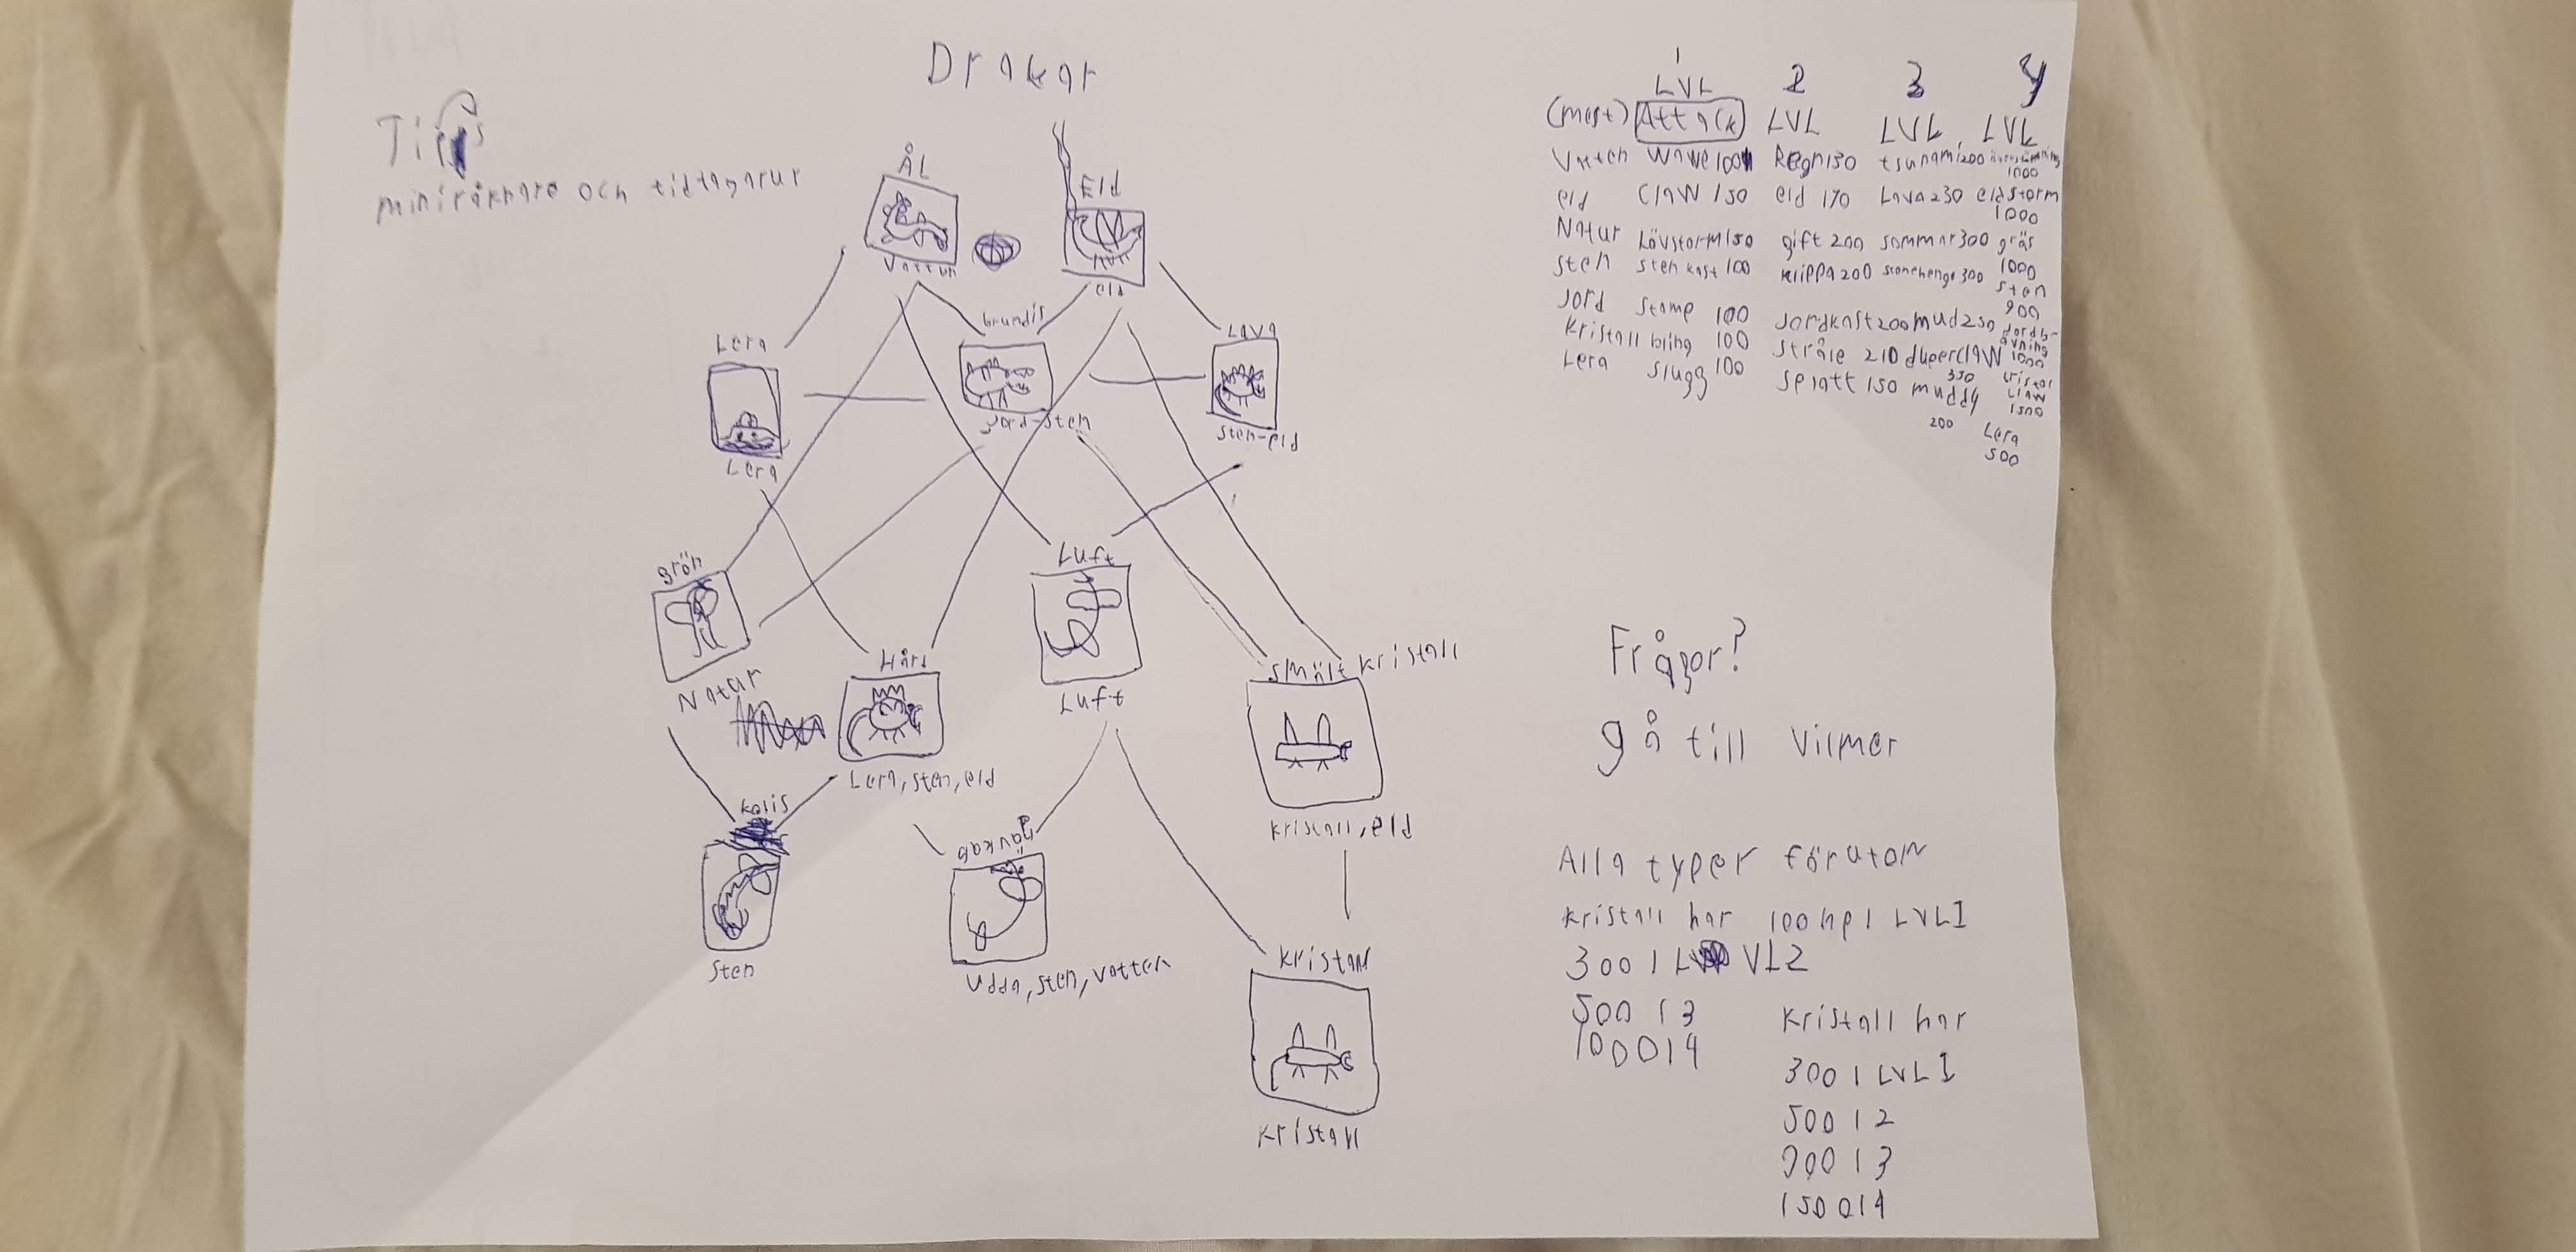 Drakar
Tips
miniräknare och tidtagarur
ÅL
Vatten
Eld
eld
Lera
Lera
brundis
Jord-sten
Lava
Sten-eld
grön
Natur
Hård
Lera, sten, eld
Luft
Luft
Smält kristall
kristall, eld
kolis
Sten
Udda, sten, vatten
kristall
kristall
1 2 3 4
LVL LVL LVL LVL
(mest) Attack
Vatten Wawe 100 Regn 150 tsunami 200
1000
eld Claw 150 eld 170 Lava 230 eldstorm
1000
Natur Lövstorm 150 gift 200 sommar 300 gräs
1000
Sten sten kast 100 klippa 200 stonehenge 300 sten
900
Jord Stamp 100 Jordkast 200 mud 250 Jordb-
ävning
1000
kristall bling 100 stråle 210 duperclaw
350
claw
1500
Lera Slugg 100 Splatt 150 muddy
200
Lera
500
Frågor?
gå till Vilmer
Alla typer förutom
kristall har 100 hp i LVL1
300 i LVL2
500 i 3
1000 i 4
kristall har
300 i LVL 1
500 i 2
900 i 3
1500 i 4